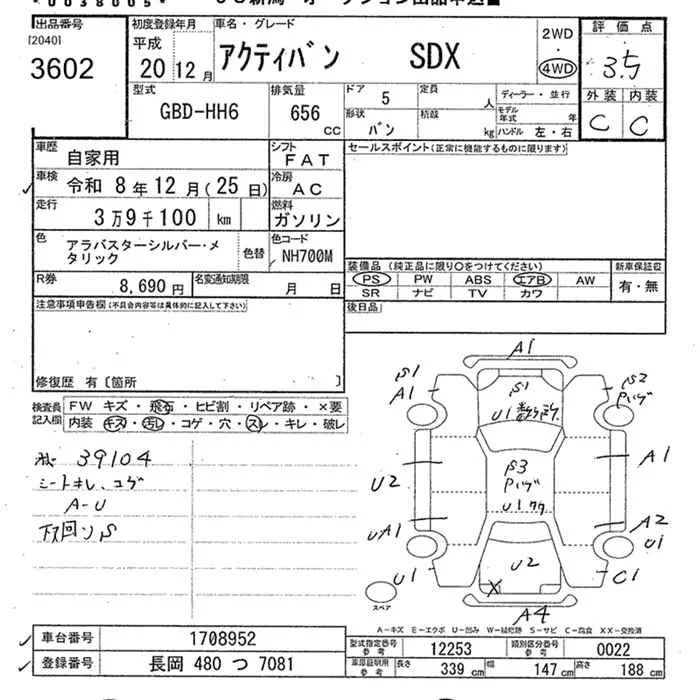 * 0 0 3 8 0 0 5 *
出品番号
[2040]
3602
初度登録年月
平成
20 12 月
車名・グレード
アクティバン SDX
2WD
・
4WD
評価点
3.5
外装 内装
C C
型式
GBD-HH6
排気量
656
CC
ドア 5
定員
人
ディーラー・並行
形状
バン
積載
kg
モデル年式 年
ハンドル 左・右
車歴
自家用
シフト
FAT
車検 令和 8 年 12 月 ( 25 日)
冷房
AC
走行
3 万 9 千 100 km
燃料
ガソリン
色
アラバスターシルバー・メタリック
色替
色コード
NH700M
R券
8,690 円
名変通知期限
月 日
セールスポイント(正常に機能するものに限ります)
装備品 (純正品に限り○をつけてください)
PS PW ABS エアB AW
SR ナビ TV カワ
新車保証書
有・無
後日品
注意事項申告欄(不具合内容等は具体的に記入して下さい)
修復歴 有〔箇所 〕
検査員記入欄
FW キズ・飛石・ヒビ割・リペア跡・×要
内装 キズ・汚レ・コゲ・穴・スレ・キレ・破レ
39104
シートキレ、コゲ
A-U
下回り S
A1
S1
A1
S1
U1
S2
Pハゲ
S3
Pハゲ
U1
A1
U2
UA1
A2
U1
U2
U1
X
C1
A4
スペア
A-キズ E-エクボ U-凹み W-補修跡 S-サビ C-腐食 XX-交換済
車台番号 1708952
登録番号 長岡 480 つ 7081
型式指定番号 参考 12253 類別区分番号 参考 0022
車庫証明用 参考 長さ 339 cm 幅 147 cm 高さ 188 cm